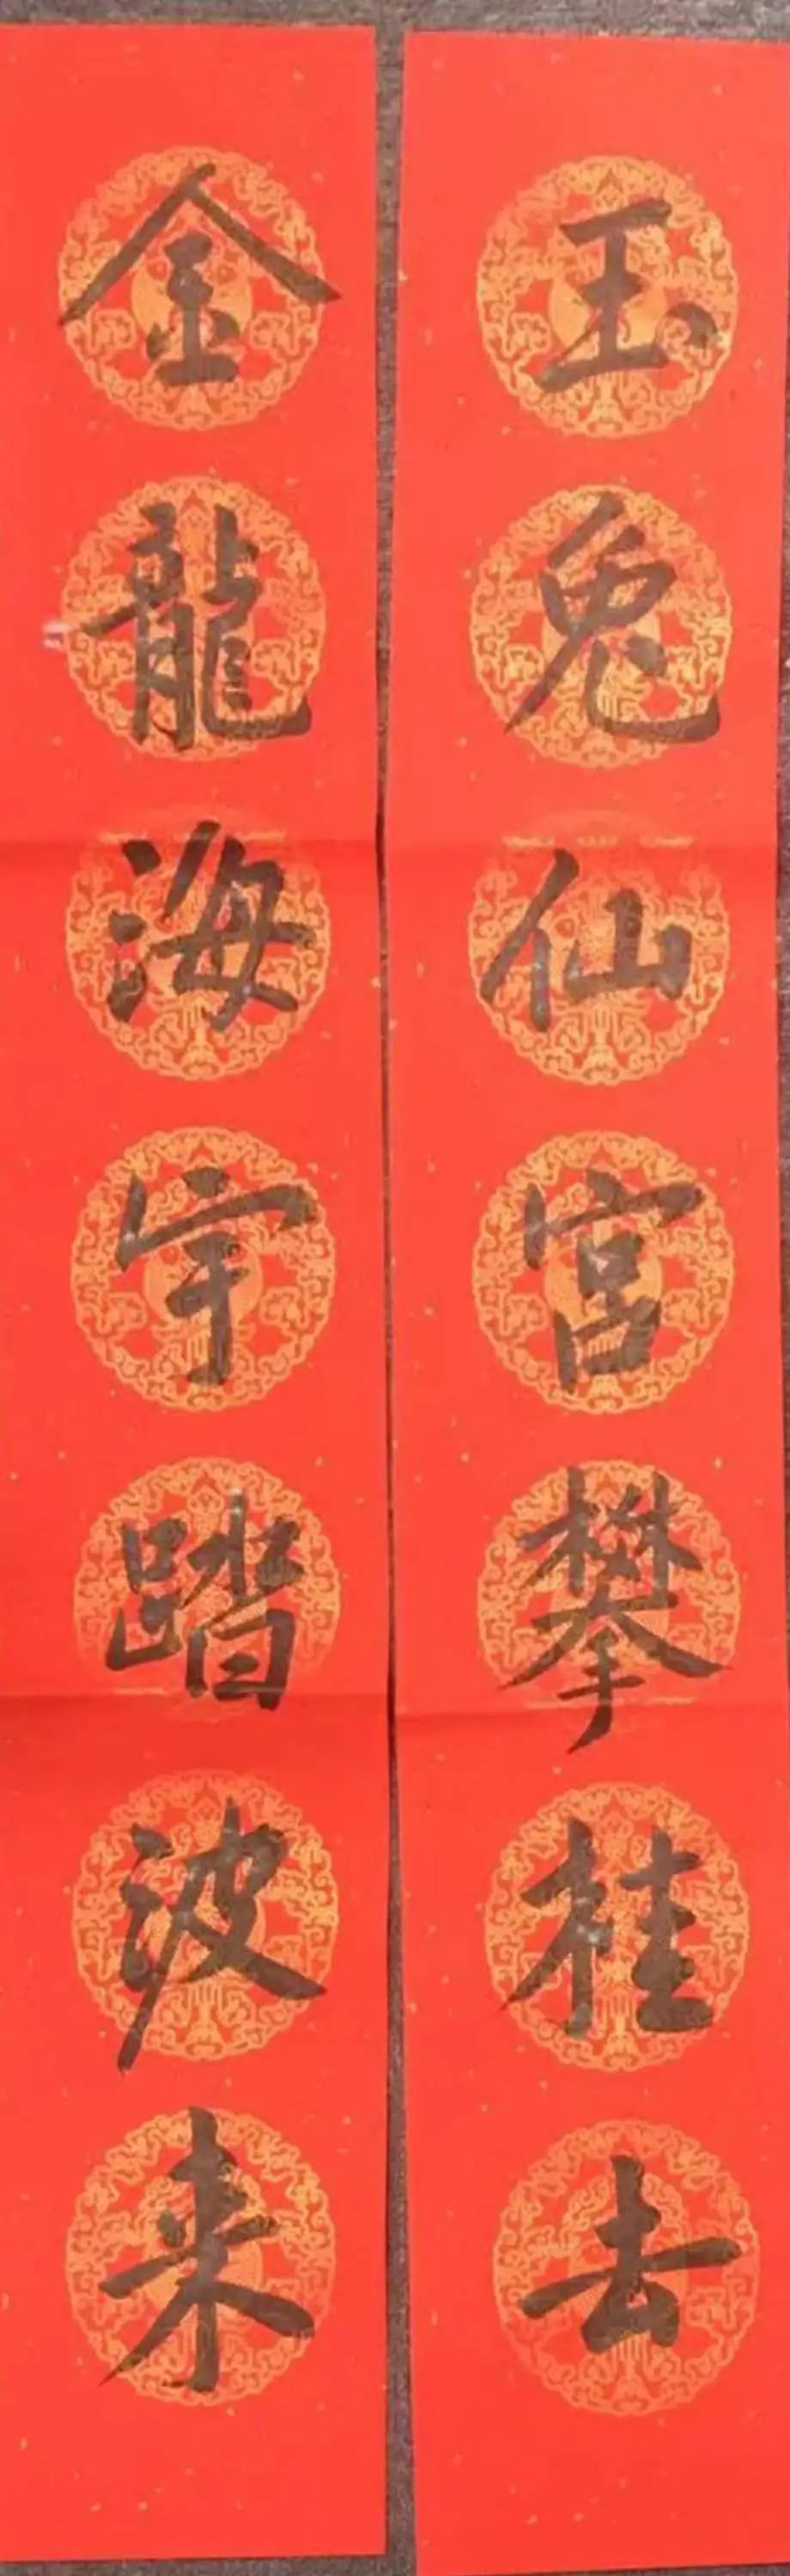 玉兔仙宮攀桂去
金龍海宇踏波来